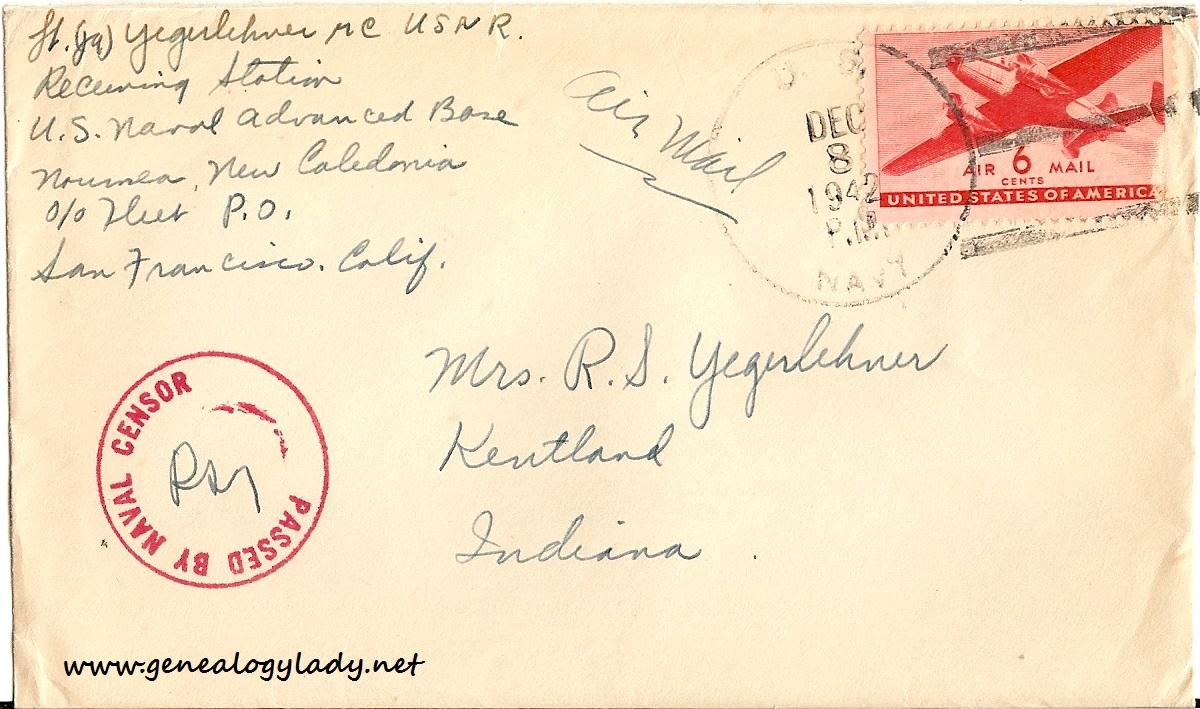 Lt. (jg) Yegerlehner MC USNR.
Receiving Station
U.S. Naval Advanced Base
Noumea, New Caledonia
c/o Fleet P.O.
San Francisco. Calif.
Air Mail
U. S.
DEC
8
1942
P.M.
NAVY
AIR 6 MAIL
CENTS
UNITED STATES OF AMERICA
Mrs. R. S. Yegerlehner
Kentland
Indiana
PASSED BY NAVAL CENSOR
RSY
www.genealogylady.net